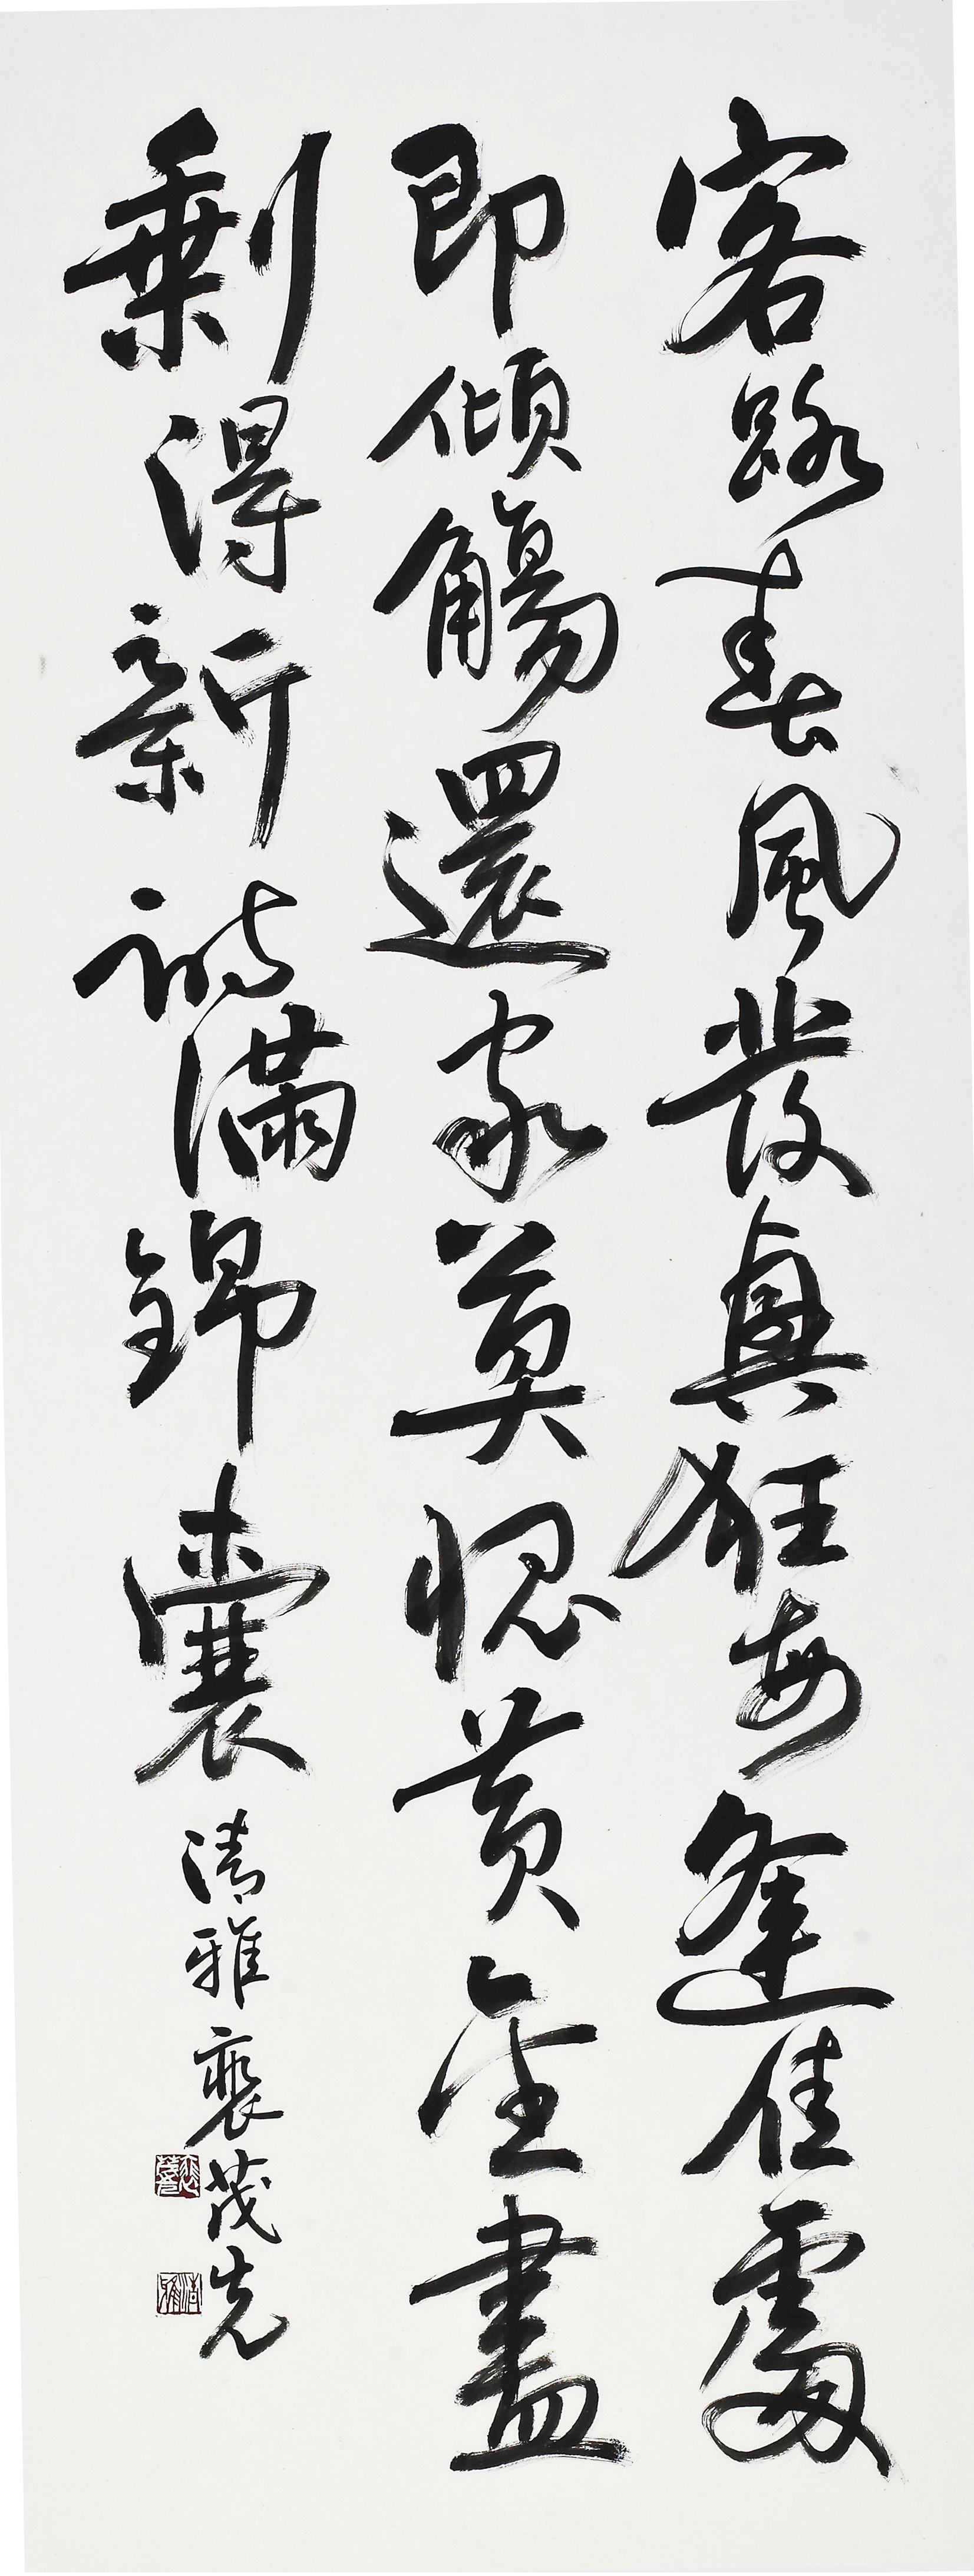 客路春風發興狂每逢佳處
即傾觴還家莫愧黃金盡
剩得新詩滿錦囊 清雅裵茂先
清雅